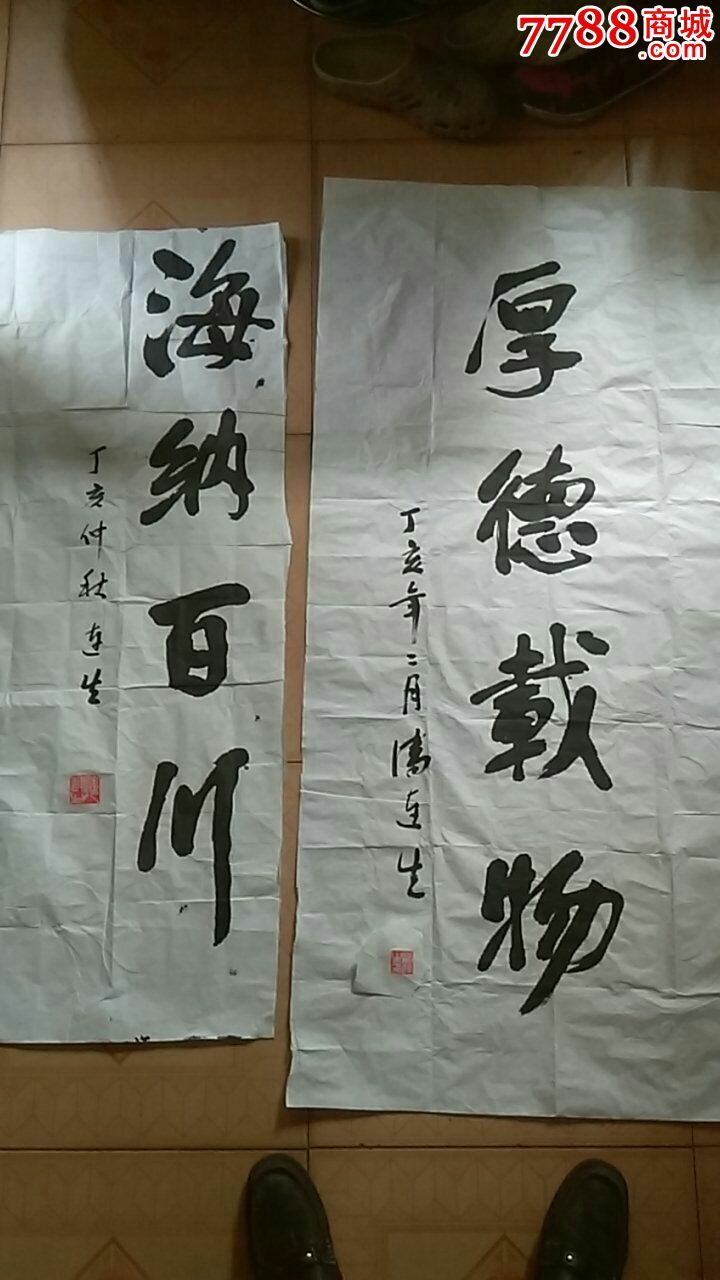 7788商城
.com
厚德载物
丁亥年二月潘连生
海纳百川
丁亥仲秋连生